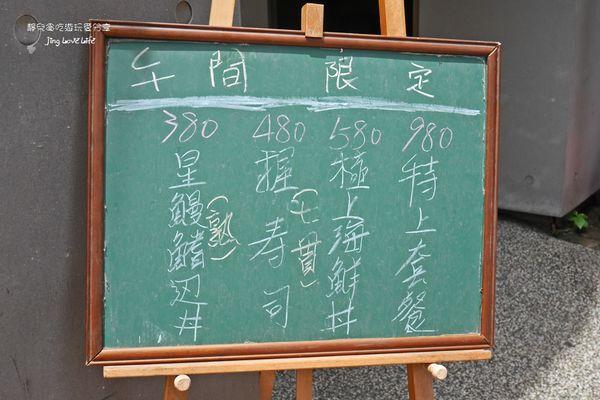 靜兒貪吃遊玩愛分享
Jing Love Life
午間限定
980
特上套餐
580
極上海鮮丼
480
握寿司
(七貫)
380
星鰻鰭辺丼
(熟)